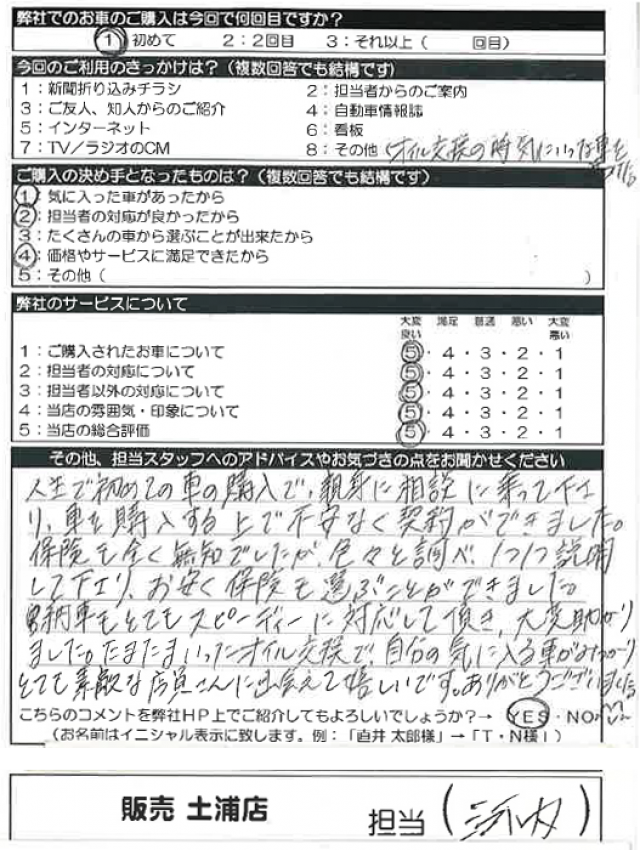 弊社でのお車のご購入は今回で何回目ですか？
① 初めて 2：2回目 3：それ以上（ 回目）
今回のご利用のきっかけは？（複数回答でも結構です）
1：新聞折り込みチラシ 2：担当者からのご案内
3：ご友人、知人からのご紹介 4：自動車情報誌
5：インターネット 6：看板
7：TV／ラジオのCM 8：その他（オイル交換の時気にいった車を
ご購入の決め手となったものは？（複数回答でも結構です）
①：気に入った車があったから
②：担当者の対応が良かったから
3：たくさんの車から選ぶことが出来たから
④：価格やサービスに満足できたから
5：その他（ ）
弊社のサービスについて
大変良い 満足 普通 悪い 大変悪い
1：ご購入されたお車について ⑤・4・3・2・1
2：担当者の対応について ⑤・4・3・2・1
3：担当者以外の対応について ⑤・4・3・2・1
4：当店の雰囲気・印象について ⑤・4・3・2・1
5：当店の総合評価 ⑤・4・3・2・1
その他、担当スタッフへのアドバイスやお気づきの点をお聞かせください
人生で初めての車の購入で、親身に相談に乗って下さ
り、車を購入する上で不安なく契約ができました。
保険も全く無知でしたが、色々と調べ、1つ1つ説明
して下さり、お安く保険も選ぶことができました。
納車もとてもスピーディーに対応して頂き、大変助かり
ました。たまたまいったオイル交換で、自分の気に入る車がみつかり
とても素敵な店員さんに出会えて嬉しいです。ありがとうございました
こちらのコメントを弊社HP上でご紹介してもよろしいでしょうか？→ YES・NO
（お名前はイニシャル表示に致します。例：「直井 太郎様」→「T・N様」）
販売 土浦店 担当（ ）